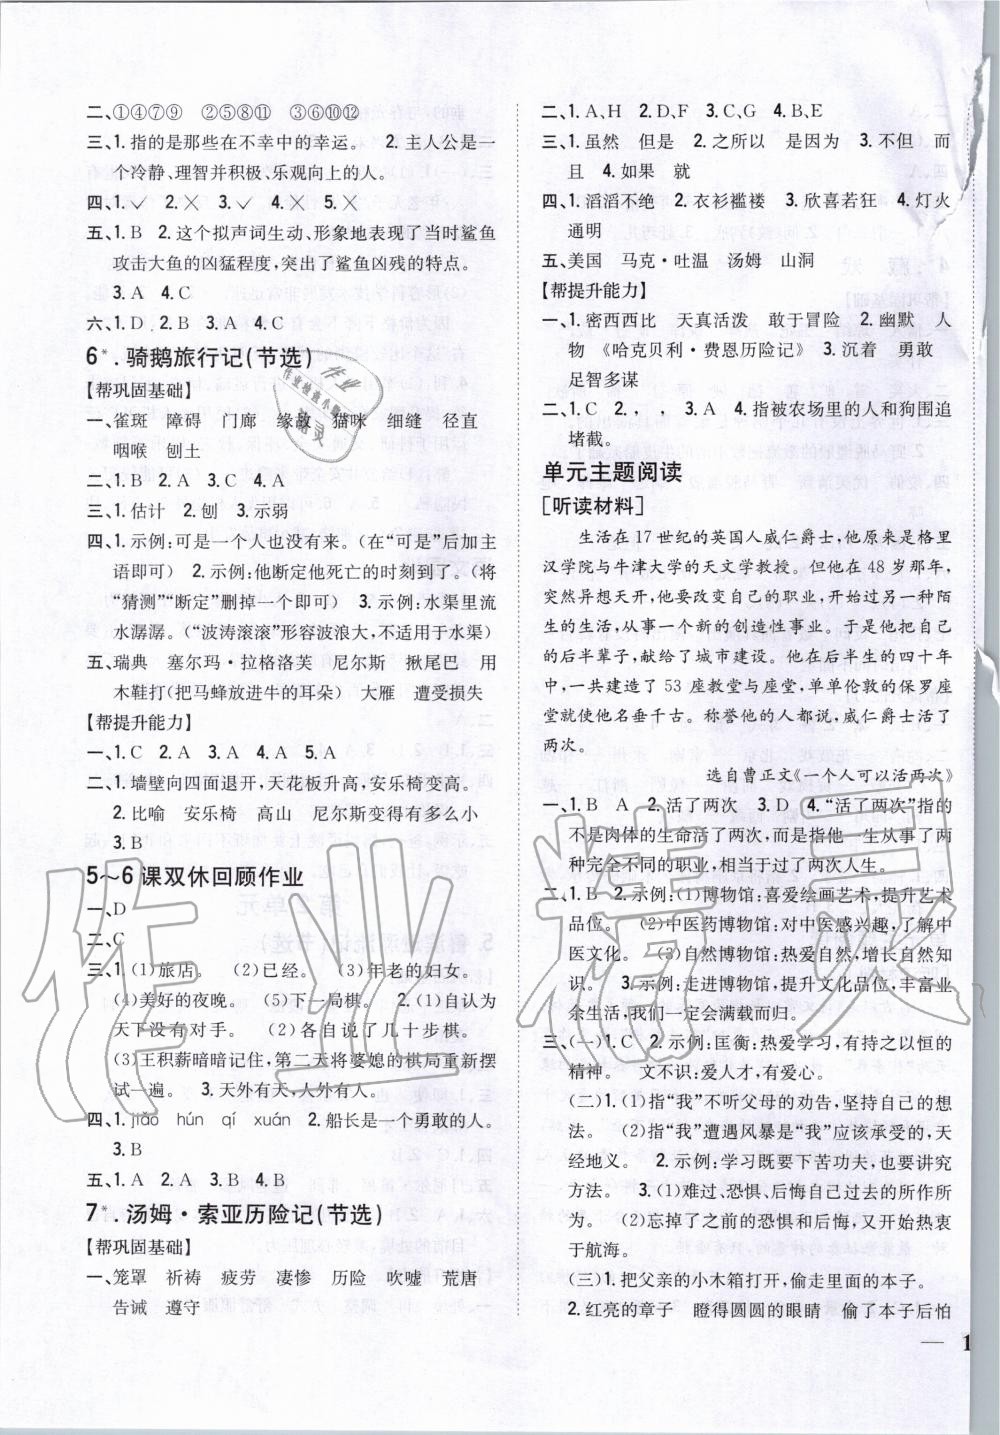 二、①④⑦⑨ ②⑤⑧⑪ ③⑥⑩⑫
三、1.指的是那些在不幸中的幸运。 2.主人公是一
个冷静、理智并积极、乐观向上的人。
四、1.✓ 2.✕ 3.✓ 4.✕ 5.✕
五、1.B 2.这个拟声词生动、形象地表现了当时鲨鱼
攻击大鱼的凶猛程度,突出了鲨鱼凶残的特点。
3.A 4.C
六、1.D 2.B 3.A 4.C
6*. 骑鹅旅行记(节选)
【帮巩固基础】
一、雀斑 障碍 门廊 缘故 猫咪 细缝 径直
咽喉 刨土
二、1.B 2.A 3.A 4.C
三、1.估计 2.刨 3.示弱
四、1.示例:可是一个人也没有来。(在“可是”后加主
语即可) 2.示例:他断定他死亡的时刻到了。(将
“猜测”“断定”删掉一个即可) 3.示例:水渠里流
水潺潺。(“波涛滚滚”形容波浪大,不适用于水渠)
五、瑞典 塞尔玛·拉格洛芙 尼尔斯 揪尾巴 用
木鞋打(把马蜂放进牛的耳朵) 大雁 遭受损失
【帮提升能力】
一、1.C 2.A 3.A 4.A 5.A
二、1.墙壁向四面退开,天花板升高,安乐椅变高。
2.比喻 安乐椅 高山 尼尔斯变得有多么小
3.B
5～6 课双休回顾作业
一、D
二、C
三、1.(1)旅店。 (2)已经。 (3)年老的妇女。
(4)美好的夜晚。 (5)下一局棋。 2.(1)自认为
天下没有对手。 (2)各自说了几十步棋。
(3)王积薪暗暗记住,第二天将婆媳的棋局重新摆
试一遍。 3.天外有天,人外有人。
四、1.jiǎo hún qí xuán 2.船长是一个勇敢的人。
3.B
五、1.A 2.A 3.B 4.B
7*. 汤姆·索亚历险记(节选)
【帮巩固基础】
一、笼罩 祈祷 疲劳 凄惨 历险 吹嘘 荒唐
告诫 遵守
二、1.A,H 2.D,F 3.C,G 4.B,E
三、1.虽然 但是 2.之所以 是因为 3.不但 而
且 4.如果 就
四、1.滔滔不绝 2.衣衫褴褛 3.欣喜若狂 4.灯火
通明
五、美国 马克·吐温 汤姆 山洞
【帮提升能力】
一、1.密西西比 天真活泼 敢于冒险 2.幽默 人
物 《哈克贝利·费恩历险记》 3.沉着 勇敢
足智多谋
二、1.C 2., , 3.A 4.指被农场里的人和狗围追
堵截。
单元主题阅读
[听读材料]
生活在 17 世纪的英国人威仁爵士,他原来是格里
汉学院与牛津大学的天文学教授。但他在 48 岁那年,
突然异想天开,他要改变自己的职业,开始过另一种陌
生的生活,从事一个新的创造性事业。于是他把自己
的后半辈子,献给了城市建设。他在后半生的四十年
中,一共建造了 53 座教堂与座堂,单单伦敦的保罗座
堂就使他名垂千古。称誉他的人都说,威仁爵士活了
两次。
选自曹正文《一个人可以活两次》
一、1.B A 2.活了两次 3.D 4.“活了两次”指的
不是肉体的生命活了两次,而是指他一生从事了两
种完全不同的职业,相当于过了两次人生。
二、1.B 2.示例:(1)博物馆:喜爱绘画艺术,提升艺术
品位。 (2)中医药博物馆:对中医感兴趣,了解中
医文化。 (3)自然博物馆:热爱自然,增长知识。
3.示例:走进博物馆,提升文化品位,丰富业
余生活,我们一定会满载而归。
三、(一)1.C 2.示例:匡衡:热爱学习,有持之以恒的
精神。 文不识:爱人才,有爱心。
(二)1.(1)指“我”不听父母的劝告,坚持自己的想
法。 (2)指“我”遭遇风暴是“我”应该承受的,天
经地义。 2.示例:学习既要下苦功夫,也要讲究
方法。 3.(1)难过、恐惧、后悔自己过去的所作所
为。 (2)忘掉了之前的恐惧和后悔,又开始热衷
于航海。
(三)1.把父亲的小木箱打开,偷走里面的本子。
2.红亮的章子 瞪得圆圆的眼睛 偷了本子后怕
— 1
作业精灵